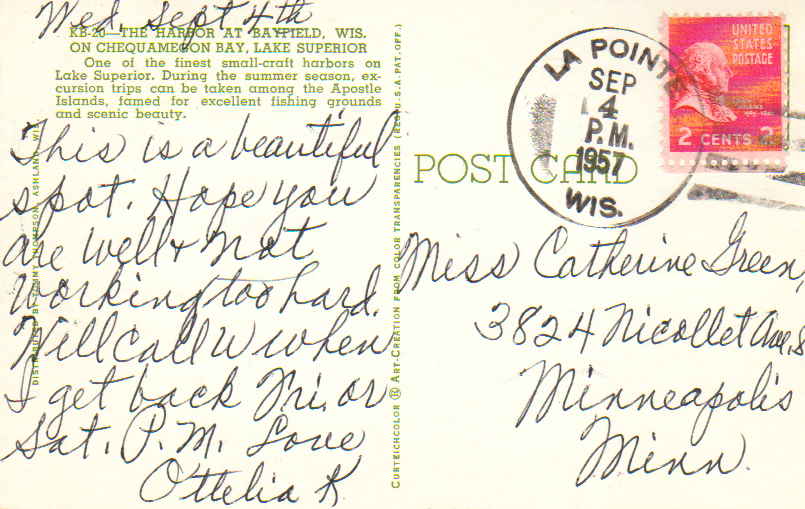 Wed, Sept 4th
KB-20—THE HARBOR AT BAYFIELD, WIS.
ON CHEQUAMEGON BAY, LAKE SUPERIOR
One of the finest small-craft harbors on
Lake Superior. During the summer season, ex-
cursion trips can be taken among the Apostle
Islands, famed for excellent fishing grounds
and scenic beauty.
This is a beautiful
spot. Hope you
are well & not
working too hard.
Will call U when
I get back Fri. or
Sat. P.M. Love
Ottelia K
DISTRIBUTED BY THOMPSON, ASHLAND, WIS.
CURTEICHCOLOR ® ART-CREATION FROM COLOR TRANSPARENCIES (REG. U.S.A. PAT. OFF.)
POST CARD
LA POINTE
SEP
4
P.M.
1957
WIS.
UNITED
STATES
POSTAGE
2 CENTS 2
Miss Catherine Green,
3824 Nicollet Ave, S
Minneapolis
Minn.